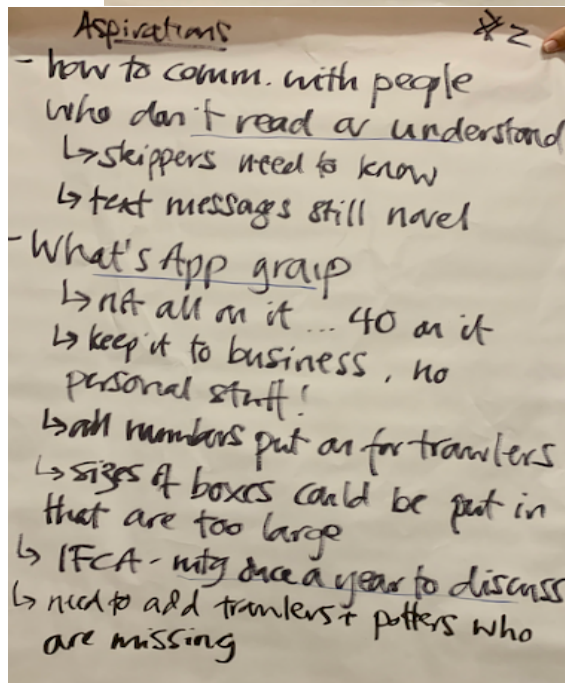 Aspirations #2
- how to comm. with people
who don't read or understand
↳ skippers need to know
↳ text messages still novel
- What's App group
↳ not all on it ... 40 on it
↳ keep it to business, no
personal stuff!
↳ all numbers put on for trawlers
↳ sizes of boxes could be put in
that are too large
↳ IFCA - mtg once a year to discuss
↳ need to add trawlers + potters who
are missing